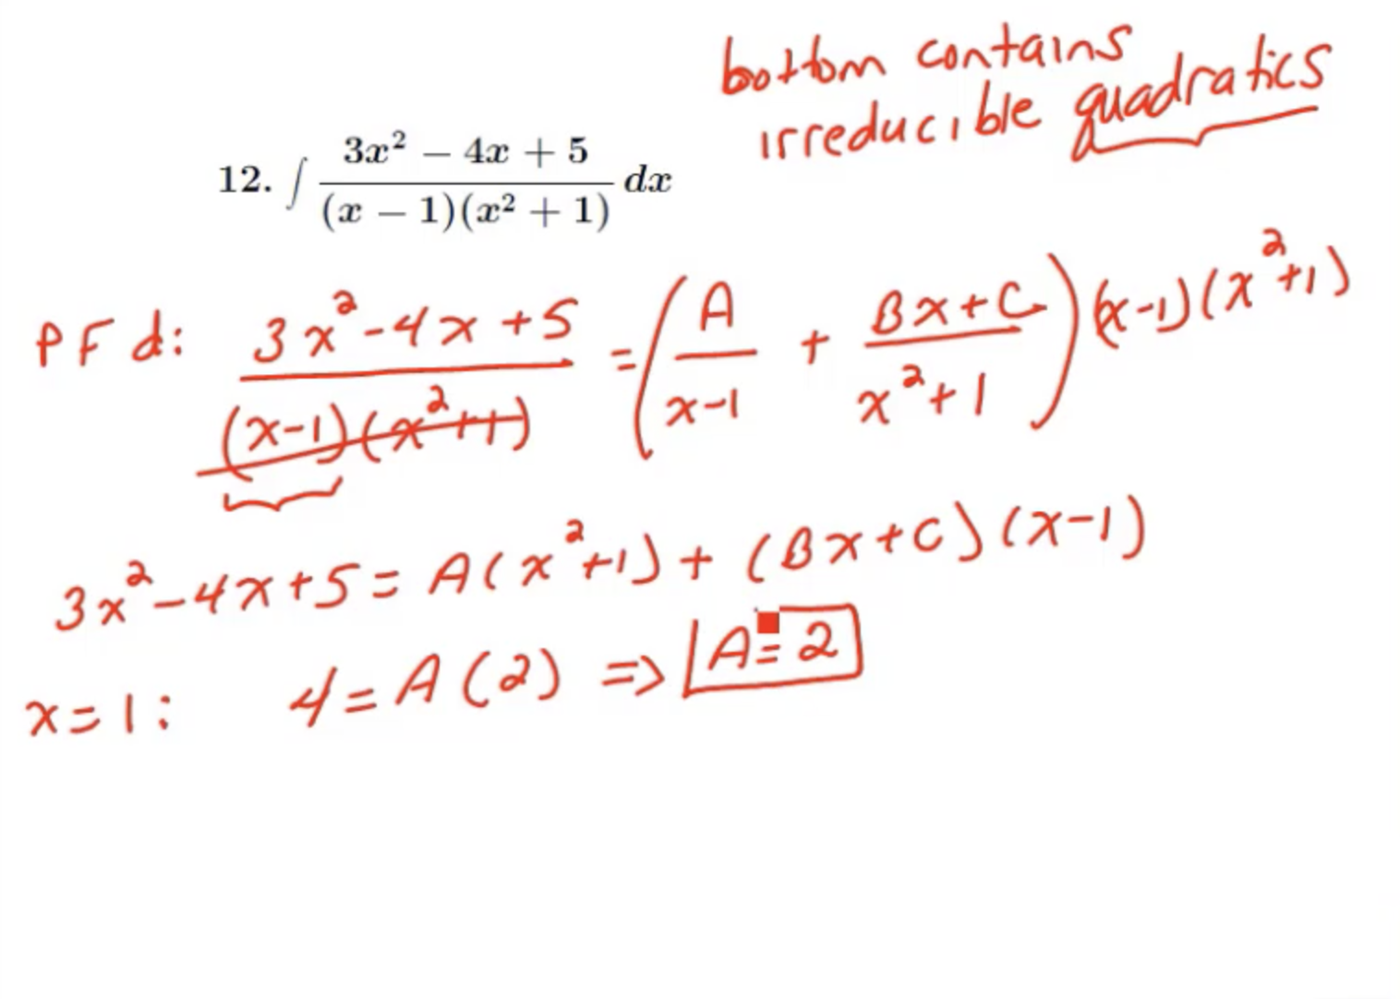 bottom contains
irreducible quadratics
12. ∫ (3x² − 4x + 5)/((x − 1)(x² + 1)) dx
PFd: (3x²-4x+5)/((x-1)(x²+1)) = (A/(x-1) + (Bx+C)/(x²+1))(x-1)(x²+1)
3x²-4x+5 = A(x²+1) + (Bx+C)(x-1)
x=1: 4=A(2) => A=2